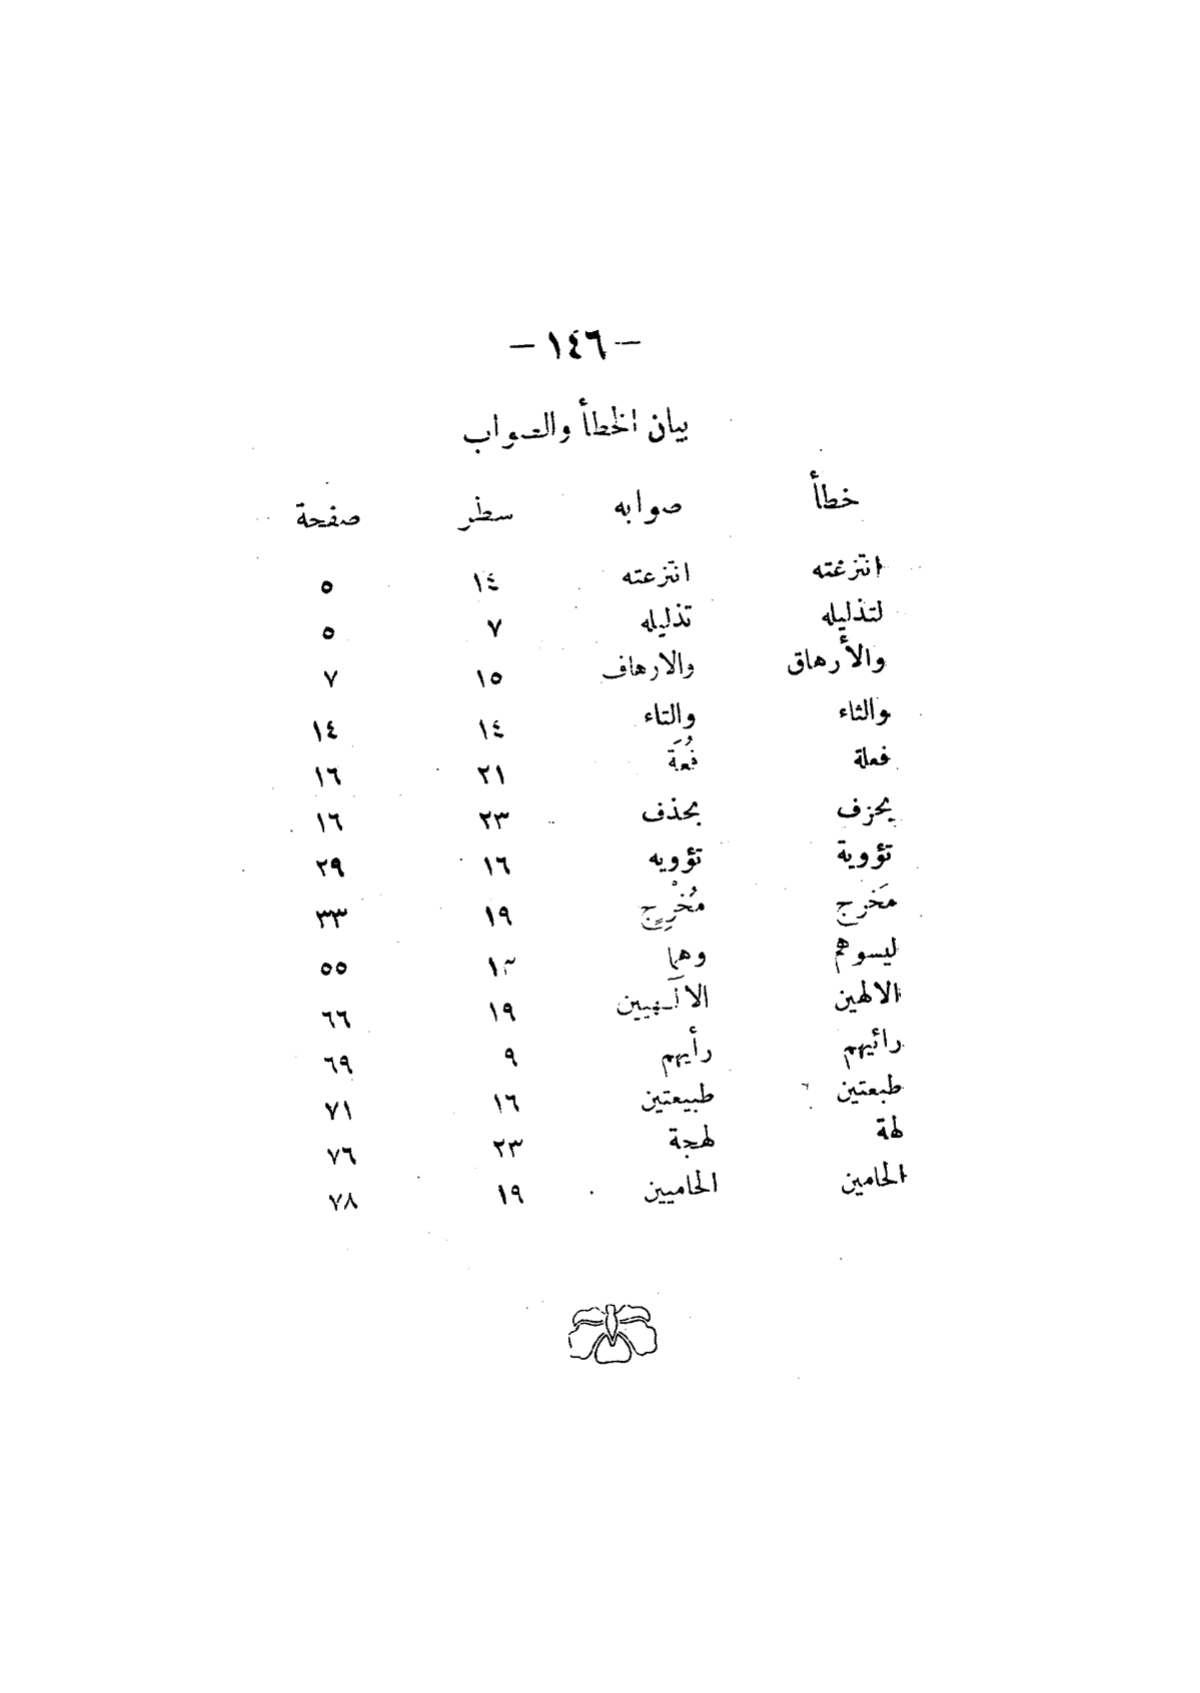 — ١٤٦ —
بيان الخطأ والصواب
خطأ صوابه سطر صفحة
انتزغته انتزعته ١٤ ٥
لتذليله تذليله ٧ ٥
والأرهاق والارهاف ١٥ ٧
والثاء والتاء ١٤ ١٤
فعلة فُعَة ٢١ ١٦
يحزف بحذف ٢٣ ١٦
تؤوية تؤويه ١٦ ٢٩
مَخرج مُخْرِج ١٩ ٣٣
ليسوهم وهما ٥٥
الالهين الآلهيين ١٩ ٦٦
رائيهم رأيهم ٩ ٦٩
طبعتين طبيعتين ١٦ ٧١
لهة لهجة ٢٣ ٧٦
الحامين الحاميين ١٩ ٧٨